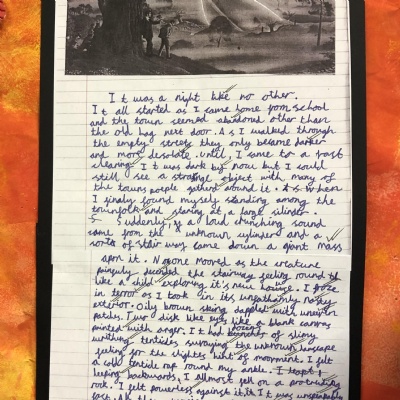 It was a night like no other.
It all started as I came home from school
and the town seemed abandoned other than
the old hag next door. As I walked through
the empty streets they only became darker
and more desolate. until, I came to a vast
clearing. It was dark by now but I could
still see a strange object with many of
the towns people gathered around it. As when
I finaly found myself standing among the
townfolk and staring at a large silinder.
Suddenly, a loud crunching sound
came from the unknown cylinder and a
sorts of stair way came down a giant mass
apon it. No one moored as the creature
the stairway feeling round
like a child exploring it's new house. I froze
in terror as I took in its
exterior. Oily brown dappled with uneven
patches. Two disk like eyes like a blank canvas
painted with anger. It had of slimy
writhing tenticles the unknown
feeling for the slightes hint of movment. I felt
a cold tenticle rap round my ankle. I leapt,
backwards, I almost fell on a protruding
rock. I felt powerless against it. It was